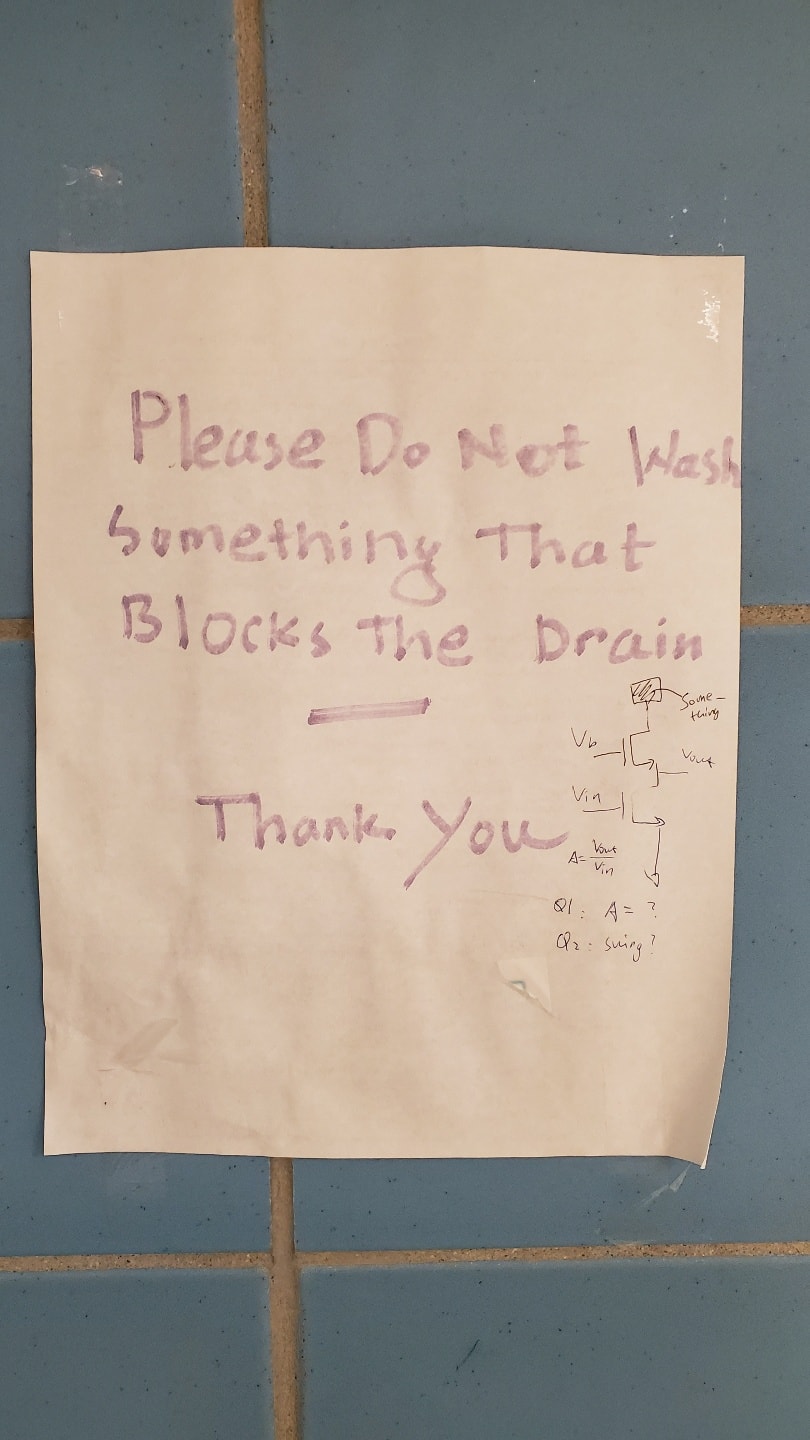 Please Do Not Wash
Something That
Blocks The Drain
Thank You
Some-
thing
Vb
Vout
Vin
A= Vout
Vin
Q1: A= ?
Q2: swing?